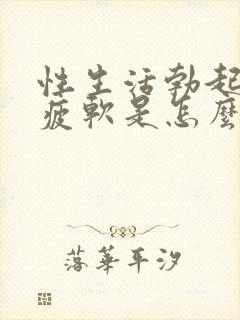 性生活勃起
疲軟是怎麼
落華平汐